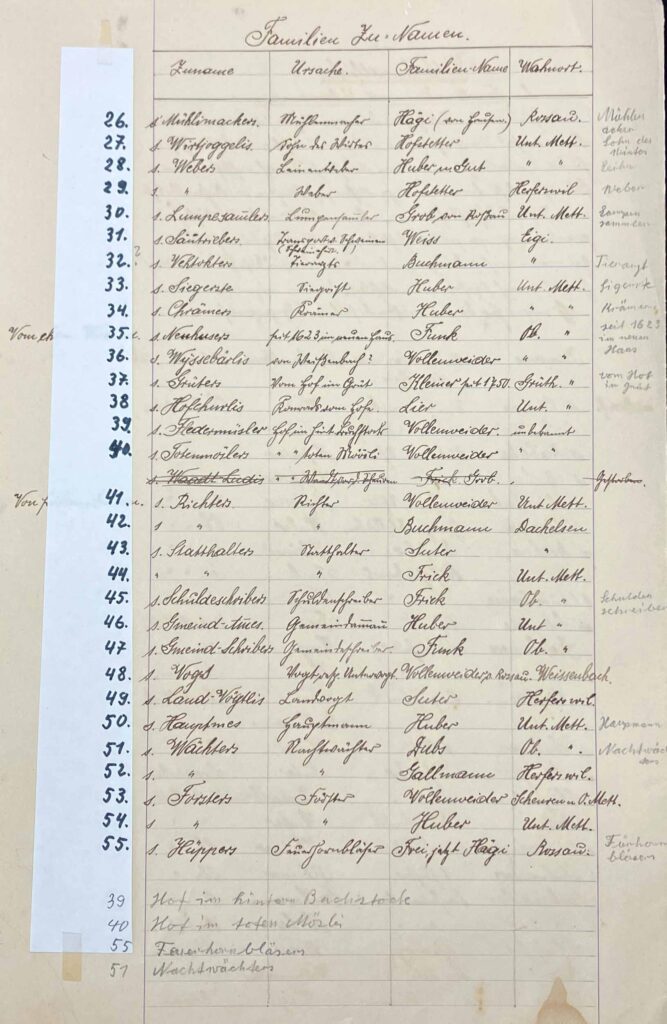 Familien Zu-Namen.
Zuname Ursache. Familien-Name Wohnort.
26. s Mühlimachers. Mühlenmacher Hägi (von Hausen.) Rossau. Mühlen
27. s Wirtjoggelis. Sohn des Wirtes Hofstetter Unt. Mett. Sohn des
28. s Webers Leinenweber Huber " "
29. s " Weber Hofstetter Herferswil Weber
30. s. Lumpesammlers Lumpensammler Grob, von Roßau Unt. Mett. Lumpen sammler
31. s. Säutriebers Transport v. Schweinen Weiss Eigi.
32. ? s. Vehtokters Tierarzts Buchmann " Tierarzt
33. s. Siegerste Siegrist Huber Unt. Mett. Sigerist
34. s. Chrämers Krämer Huber " " Krämer
35. s. Neuhusers seit 1623 im neuen Haus. Funk Ob. " seit 1623 im neuen Haus
36. s. Wyssebärlis von Weißenbach? Vollenweider " "
37. s. Grüters Vom Hof im Grüt Kleiner seit 1750. Grüth. " vom Hof im Grüt
38 s. Hofchurlis Konrads vom Hofe. Lier Unt. "
39. s. Fledermüsler Hof im hint. Buchstock Vollenweider. unbekannt
40. s. Totenmöilers " " toten Mösli Vollenweider " "
s. Wandt Ludis " " Frick Grob. Gestorben.
41. s. Richters Richter Vollenweider Unt Mett.
42. s " " Buchmann Dachelsen
43. s. Statthalters Statthalter Suter "
44. " " " Frick Unt. Mett.
45. s. Schuldeschribers Schuldenschreiber Frick Ob. " Schulden schreiber
46. s. Gmeind-Ames. Gemeindamman Huber Unt "
47 s. Gmeind-Schribers Gemeindeschreiber Funk Ob. "
48 s. Vogt Vogt resp. Untervogt. Vollenweider v. Rossau. Weissenbach.
49. s. Land-Vögtlis Landvogt Suter Herferswil.
50. s. Hauptmes Hauptmann Huber Unt. Mett. Haupmann
51. s. Wächters Nachtwächter Dubs Ob. ". Nachtwächters
52. s. " " Gallmann Herferswil.
53. s. Forsters Förster Vollenweider Scheuren u. O. Mett.
54. s " " Huber Unt. Mett.
55. s. Hüppers Feuerhornbläser Frei, jetzt Hägi Rossau. Fürhorn bläsers
39 Hof im hintern Buchstock
40 Hof im toten Mösli
55 Feuerhornbläsers
51 Nachtwächters